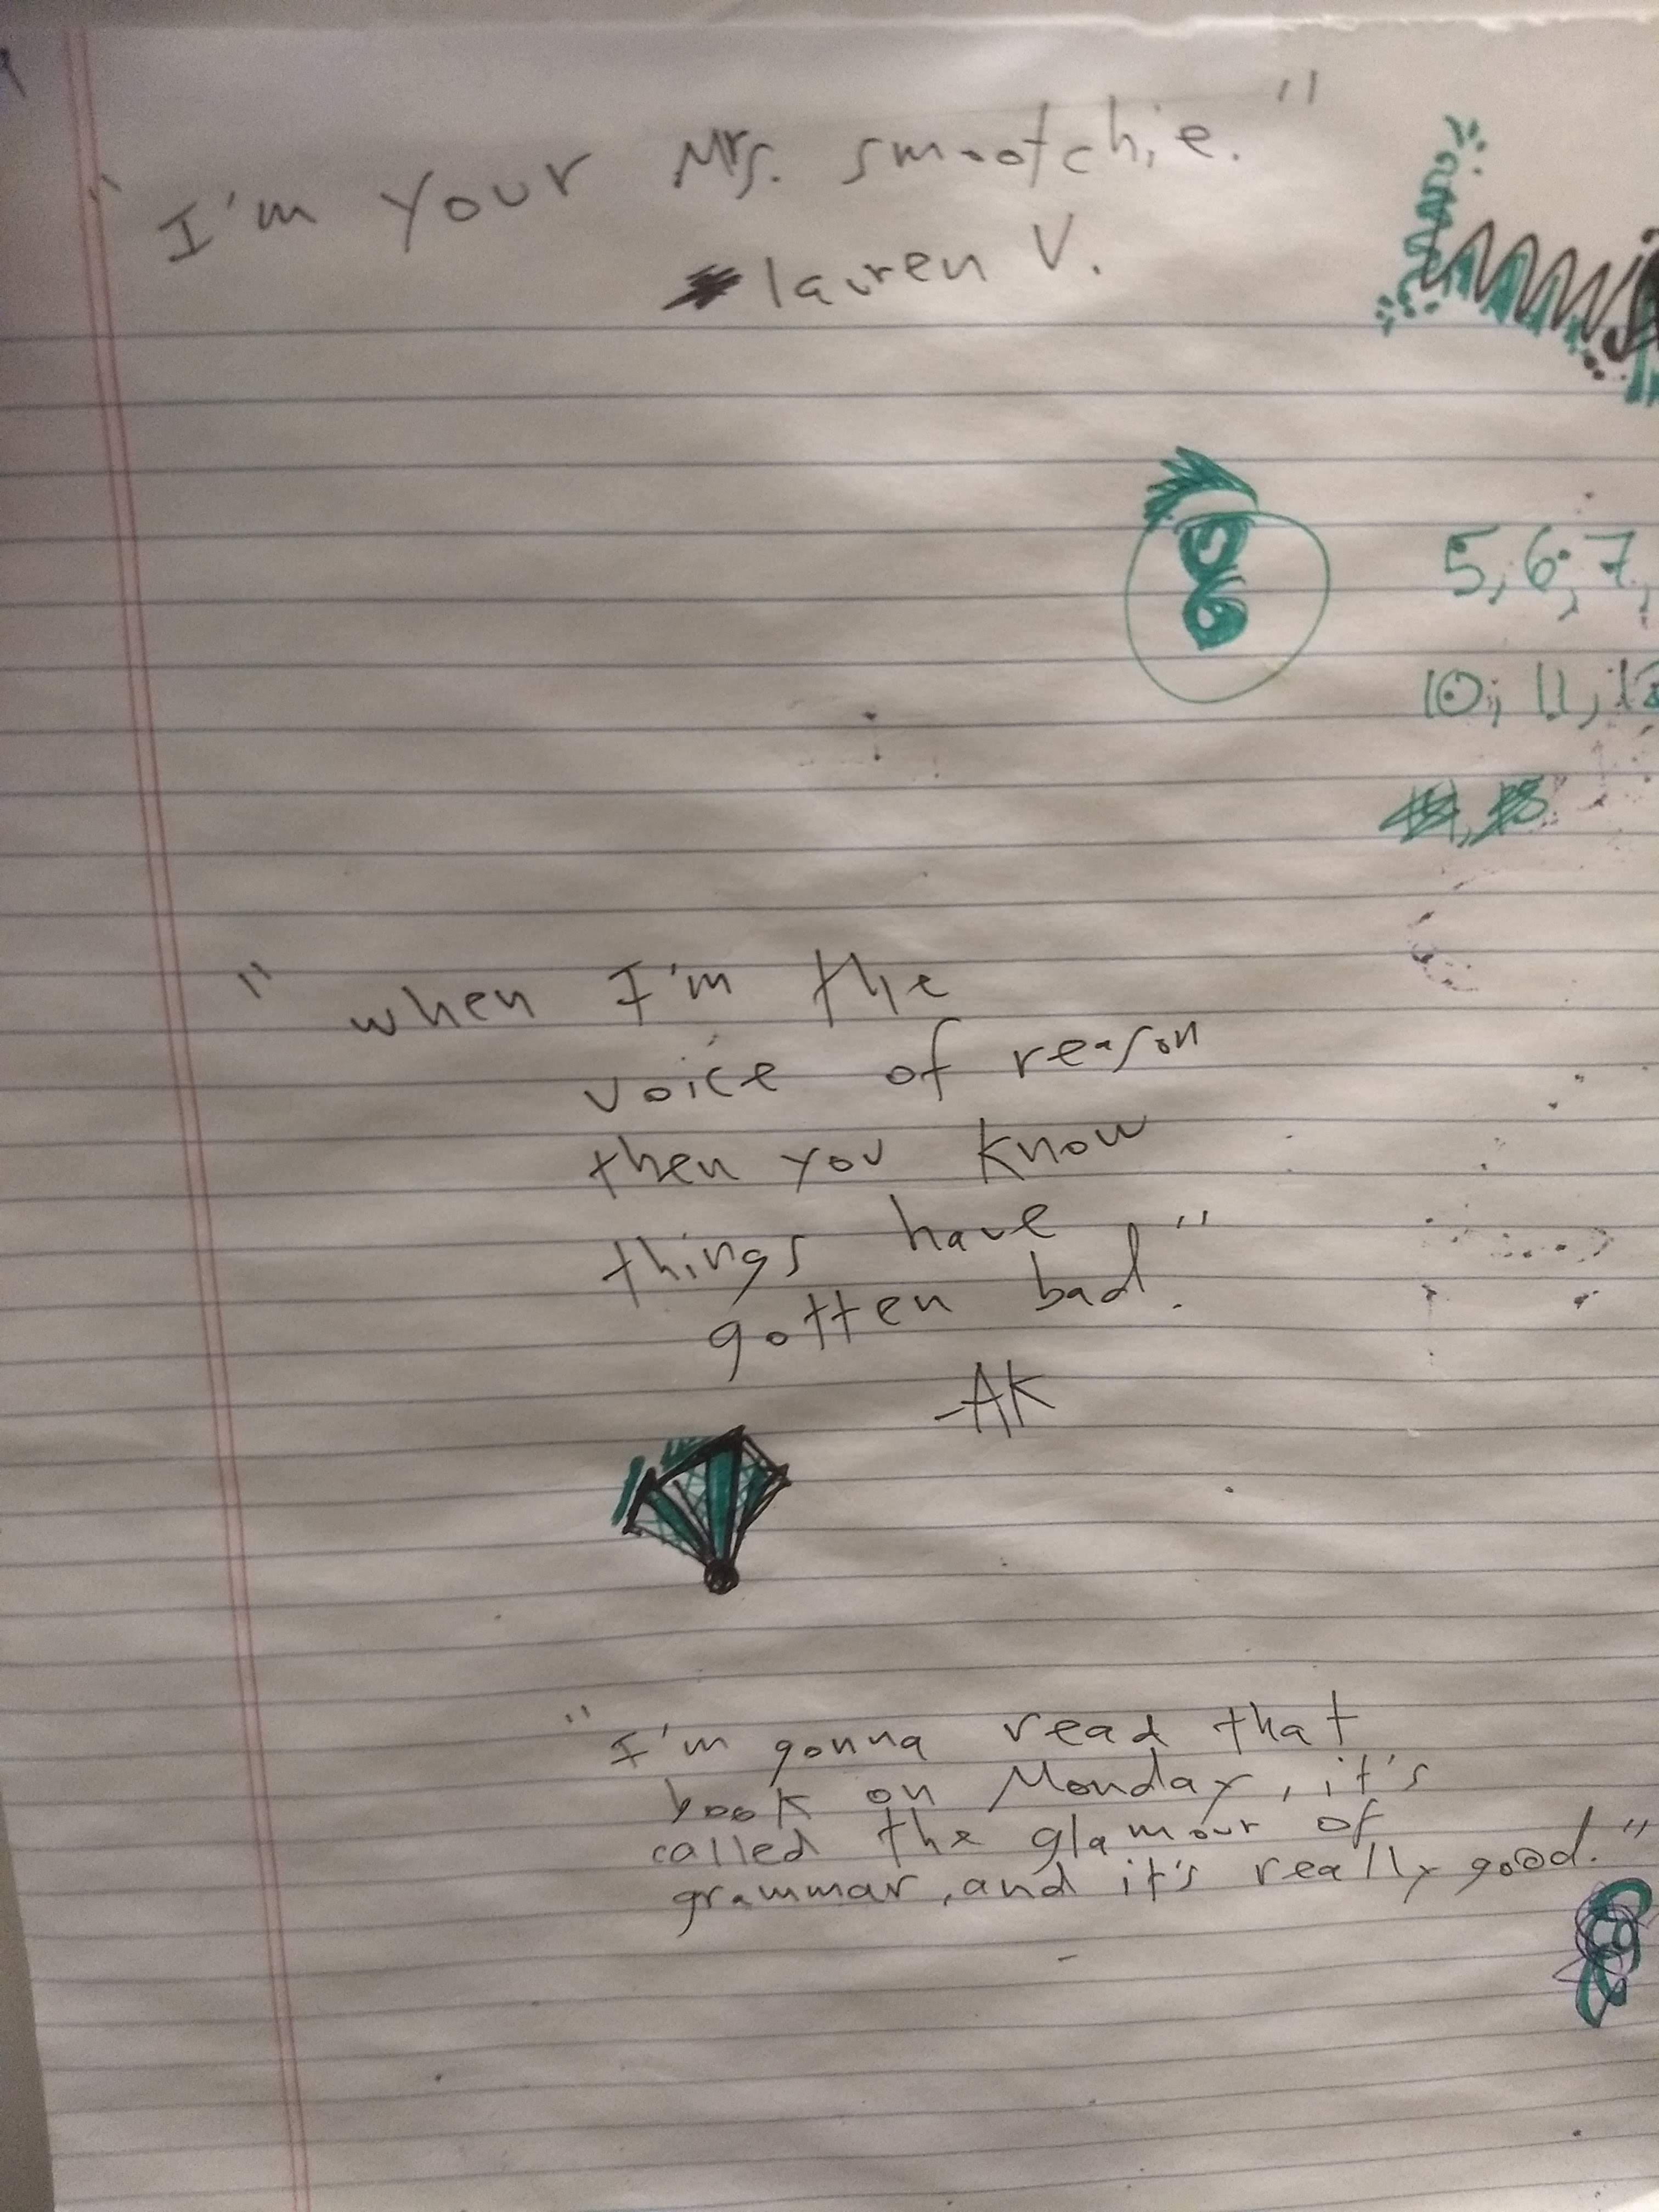 "I'm your Mrs. smootchie."
lauren V.
5, 6, 7,
10, 11, 12
"when I'm the
voice of reason
then you know
things have
gotten bad."
-AK
"I'm gonna read that
book on Monday, it's
called the glamour of
grammar, and it's really good."